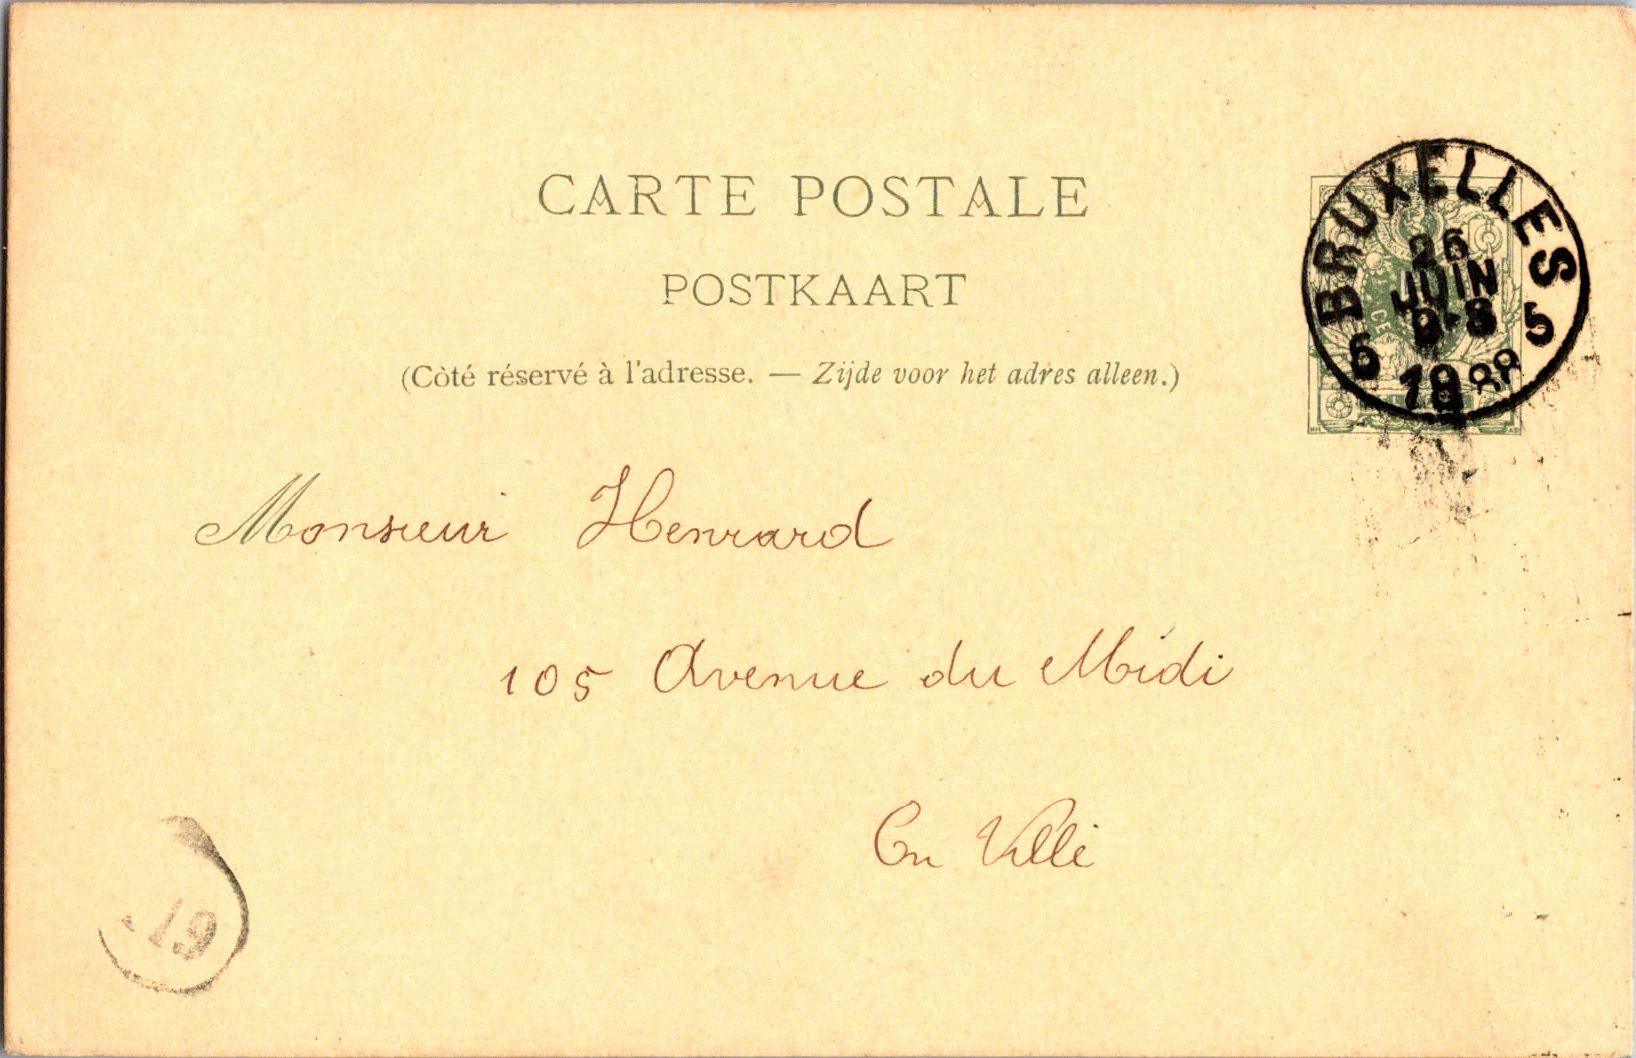 CARTE POSTALE
POSTKAART
(Côté réservé à l'adresse. — Zijde voor het adres alleen.)
BRUXELLES
26
JUIN
8-S
5 5
1888
Monsieur Henrard
105 Avenue du Midi
En Ville
19